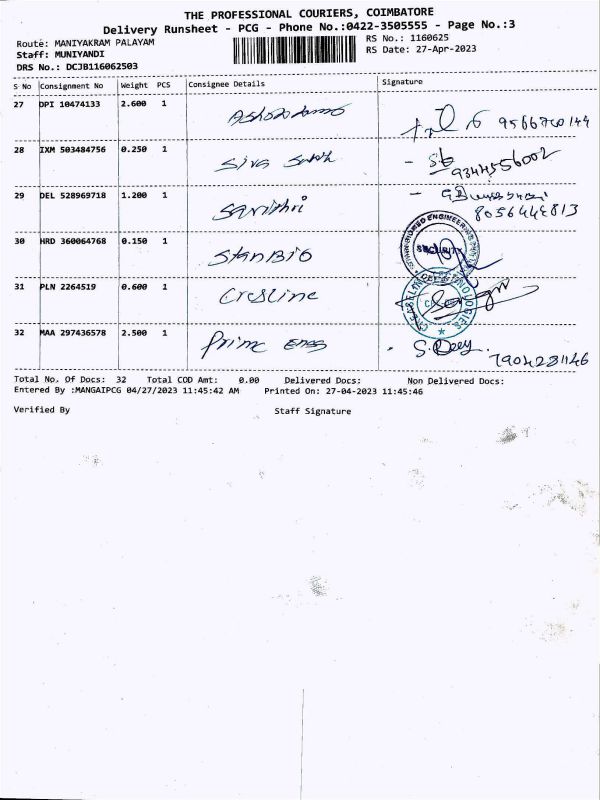 THE PROFESSIONAL COURIERS, COIMBATORE
Delivery Runsheet - PCG - Phone No.:0422-3505555 - Page No.:3
Route: MANIYAKRAM PALAYAM
RS No.: 1160625
Staff: MUNIYANDI
RS Date: 27-Apr-2023
DRS No.: DCJB116062503
S No Consignment No Weight PCS Consignee Details Signature
27 DPI 10474133 2.600 1
28 IXM 503484756 0.250 1 Siva Sakth 9344556002
29 DEL 528969718 1.200 1 Savithri
8056448813
30 HRD 360064768 0.150 1 StanBio SECURITY
31 PLN 2264519 0.600 1 Cresline
32 MAA 297436578 2.500 1 Prime S. Deey
7904281146
Total No. Of Docs: 32 Total COD Amt: 0.00 Delivered Docs: Non Delivered Docs:
Entered By :MANGAIPCG 04/27/2023 11:45:42 AM Printed On: 27-04-2023 11:45:46
Verified By Staff Signature